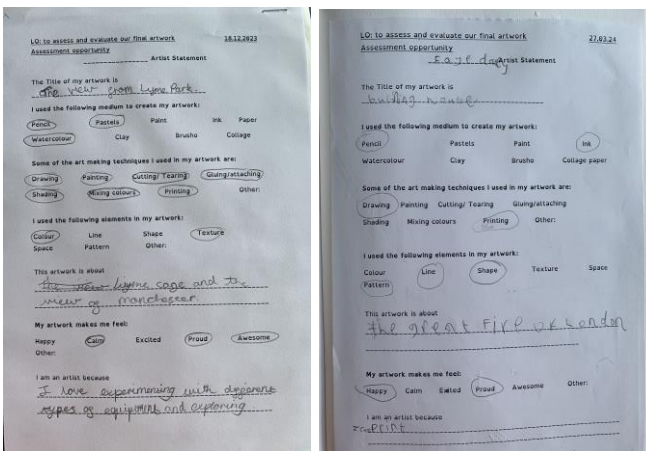 LO: to assess and evaluate our final artwork 18.12.2023
Assessment opportunity
Artist Statement
The Title of my artwork is
The view from Lyme Park.
I used the following medium to create my artwork:
Pencil Pastels Paint Ink Paper
Watercolour Clay Brusho Collage
Some of the art making techniques I used in my artwork are:
Drawing Painting Cutting/ Tearing Gluing/attaching
Shading Mixing colours Printing Other:
I used the following elements in my artwork:
Colour Line Shape Texture
Space Pattern Other:
This artwork is about
the view lyme cage and the
view of manchester.
My artwork makes me feel:
Happy Calm Excited Proud Awesome
Other:
I am an artist because
I love experimening with different
types of equipment and exploring
LO: to assess and evaluate our final artwork 27.03.24
Assessment opportunity
Artist Statement
The Title of my artwork is
I used the following medium to create my artwork:
Pencil Pastels Paint Ink
Watercolour Clay Brusho Collage paper
Some of the art making techniques I used in my artwork are:
Drawing Painting Cutting/ Tearing Gluing/attaching
Shading Mixing colours Printing Other:
I used the following elements in my artwork:
Colour Line Shape Texture Space
Pattern
This artwork is about
the great Fire of London
My artwork makes me feel:
Happy Calm Excited Proud Awesome Other:
I am an artist because
Print